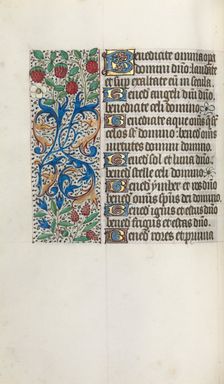 Benedicite omnia opa
domini dño: laudate
et supexaltate eū in secula.
Bened angeli dñi dño:
benedicite celi domino
Benedicite aque omēs que sup
celos sūt domino: bened omēs
virtutes domini domino.
Bened sol et luna dño:
bened stelle celi domino.
Bened ymber et ros dño
bened omīs spūs dei domino.
Bened ignis et estus dño
bened frigus et estus dño
Bened rores et pruina